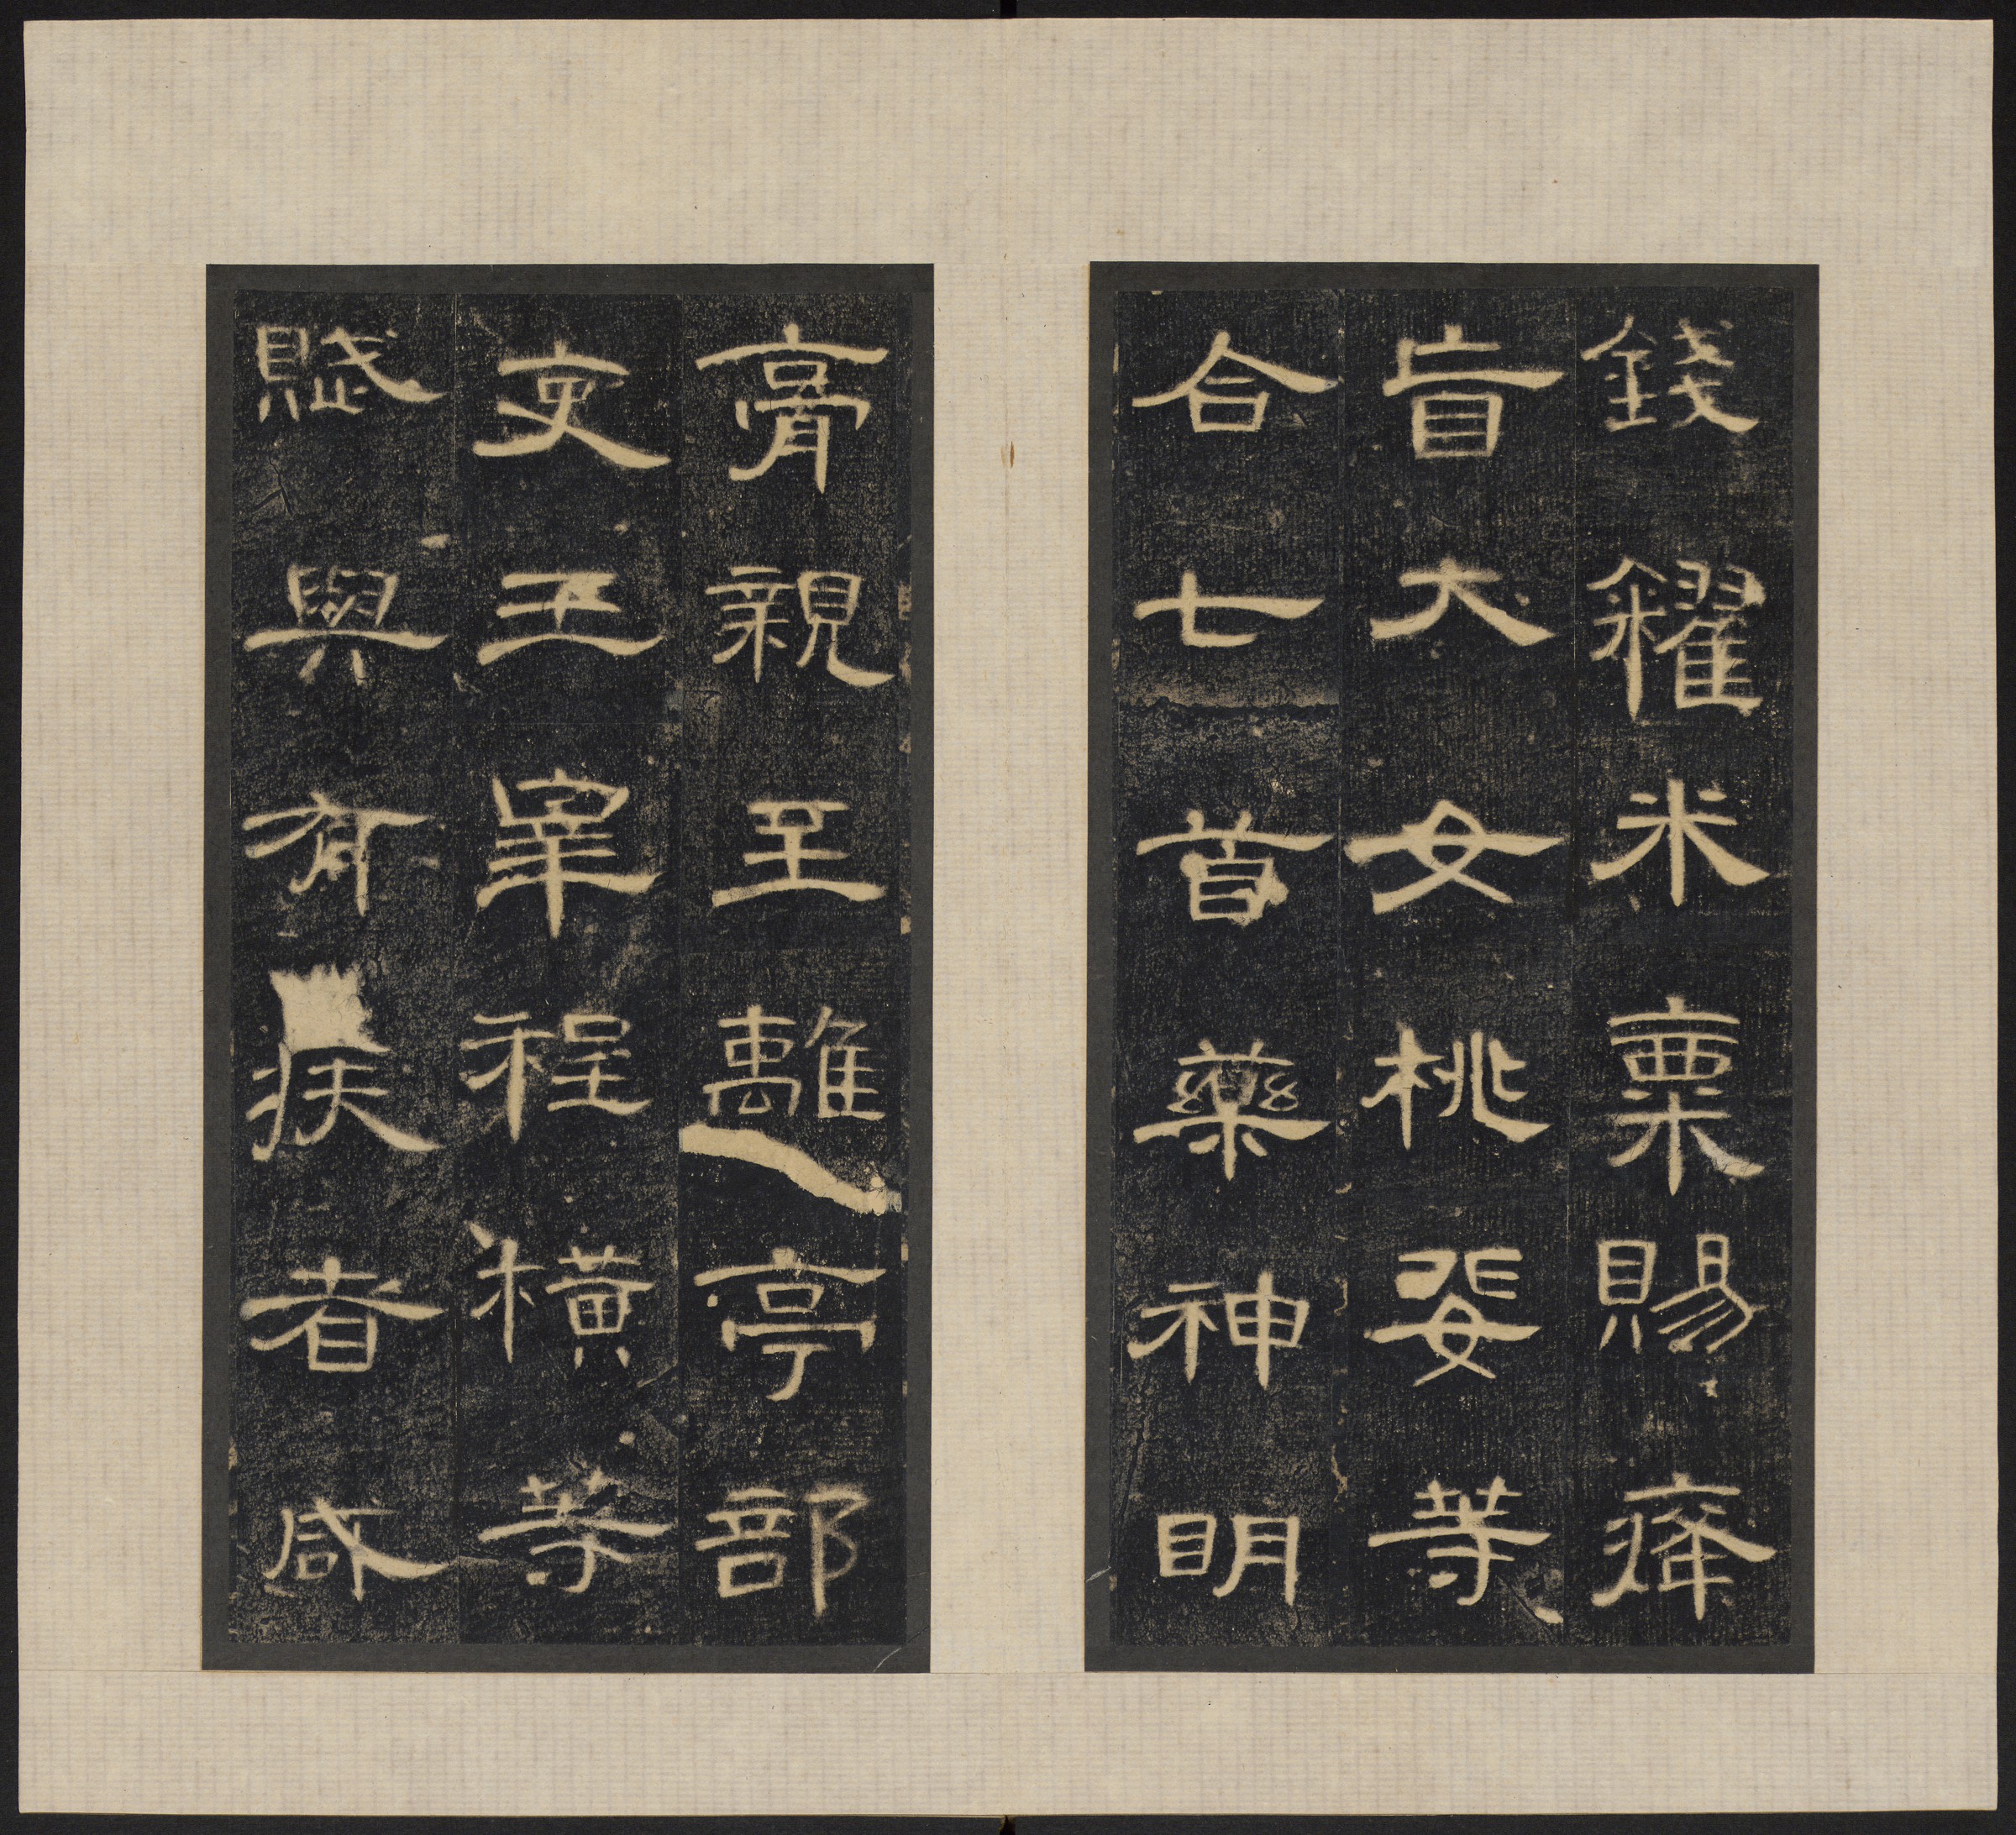 錢糴米粟賜𤸇
盲大女桃婓等
合七首藥神明
膏親至離亭部
吏王宰程橫等
賦與有疾者咸